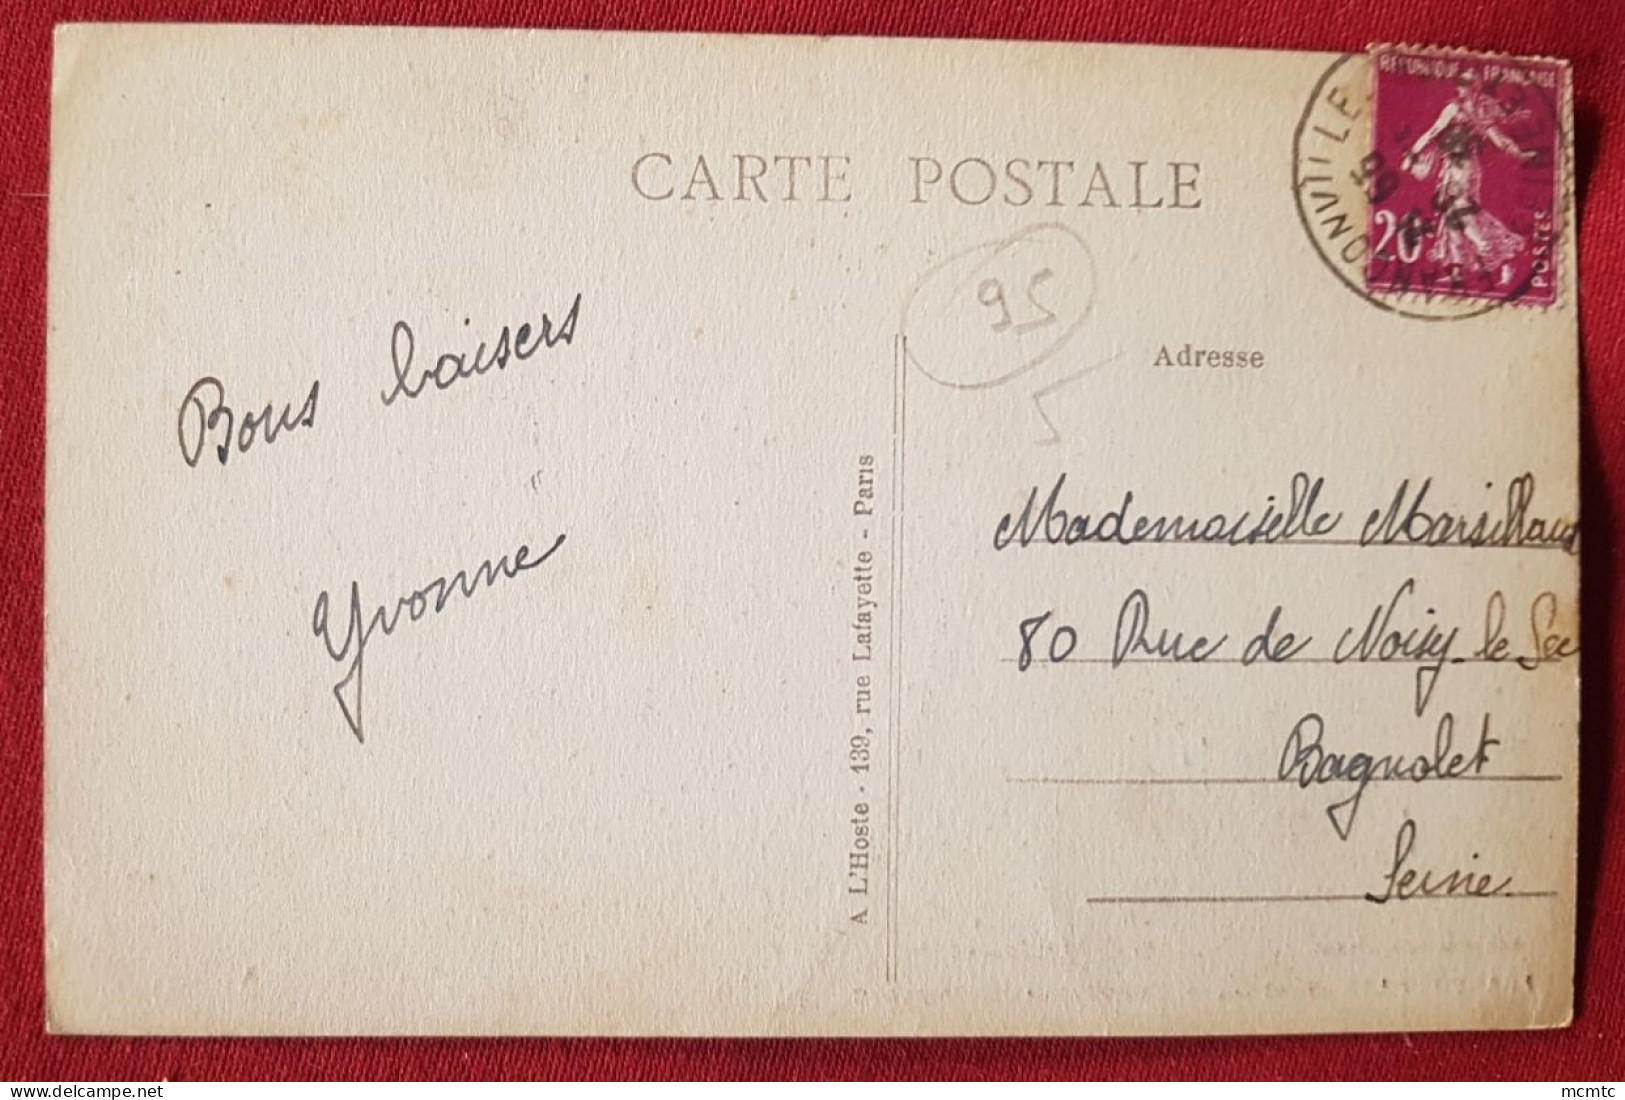 CARTE POSTALE
REPUBLIQUE FRANÇAISE
20 c
POSTES
95
Adresse
Bons baisers
Yvonne
A L'Hoste - 139, rue Lafayette - Paris
Mademoiselle Marsillaud
80 Rue de Noisy-le Sec
Bagnolet
Seine
mcmtc